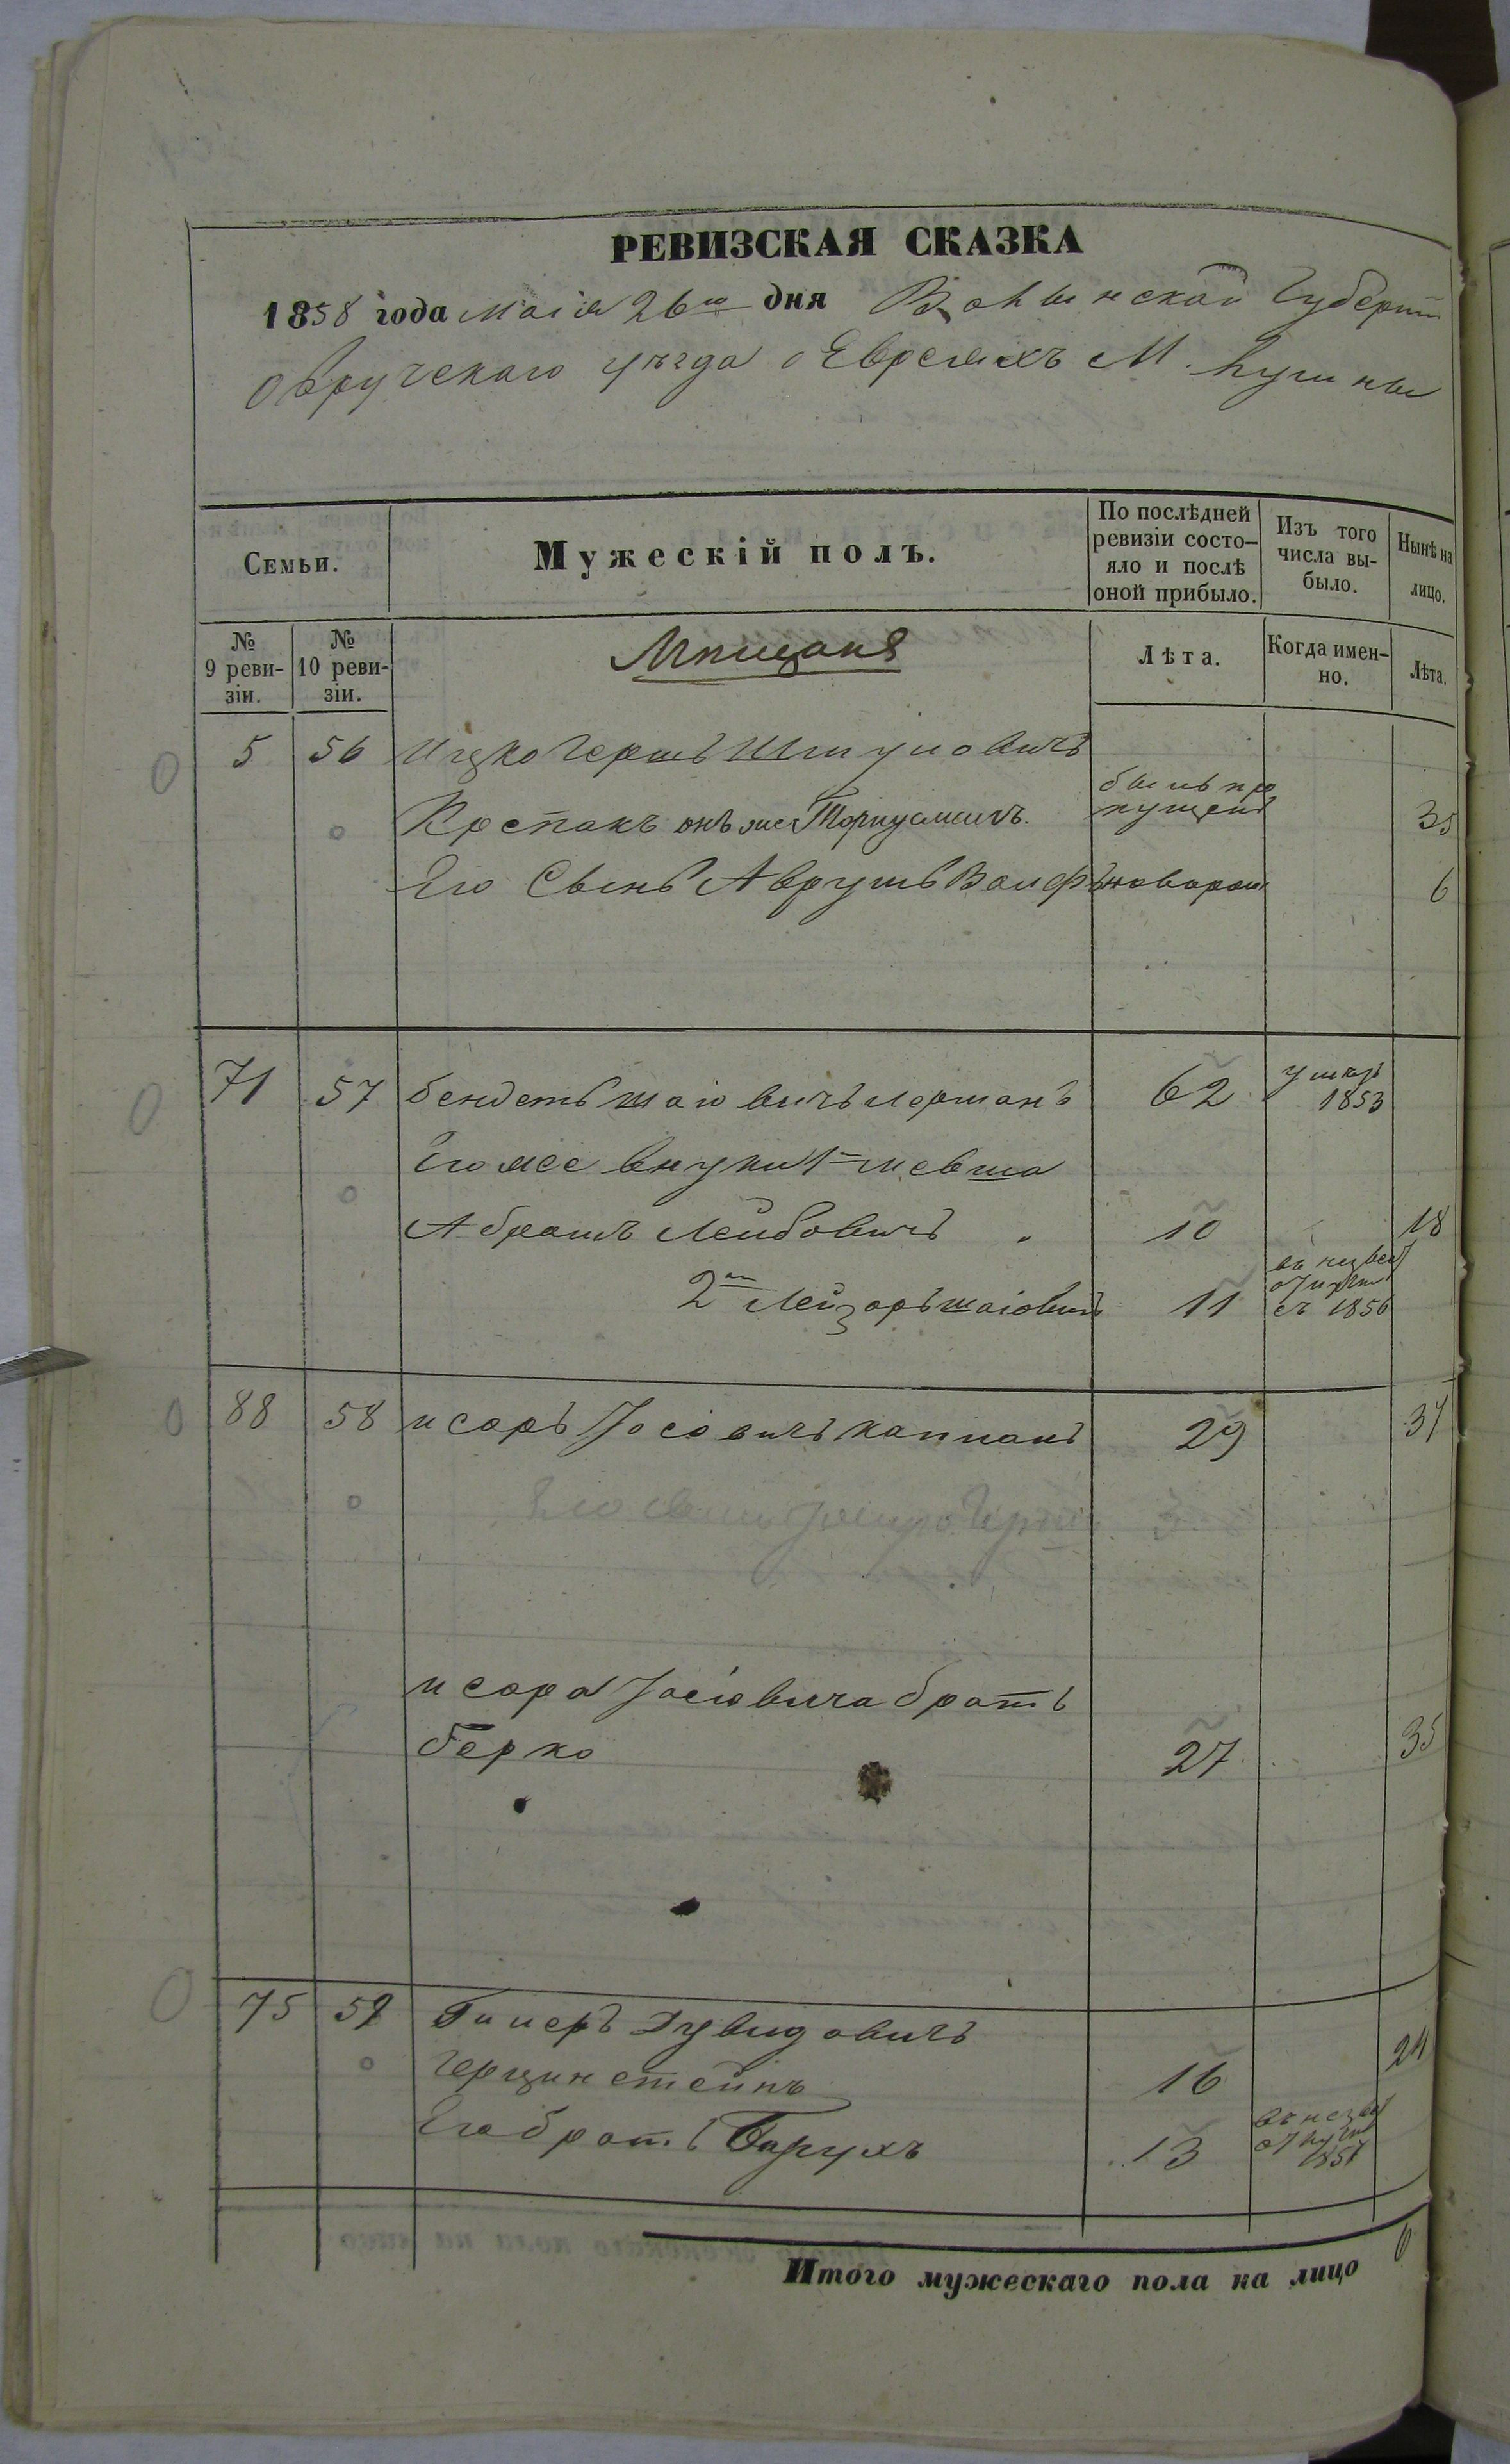 РЕВИЗСКАЯ СКАЗКА
1858 года маія 26го дня Волынской Губерніи
Овручскаго уѣзда о Евреяхъ М. Лугины
Семьи.
Мужескій полъ.
По послѣдней ревизіи состо-
яло и послѣ
оной прибыло.
Изъ того
числа вы-
было.
Нынѣ на
лицо.
№
9 реви-
зіи.
№
10 реви-
зіи.
Мѣщане
Лѣта.
Когда имен-
но.
Лѣта.
5 56 Ицко Гершъ Шмуловичъ
былъ про
пущенъ
онъ же 35
Его Сынъ Аврумъ Волфъ новорож 6
71 57 бендетъ шаіовичъ лерманъ 62
1853
Его же внуки 1й мевша
Абрамъ Лейбовичъ 10 18
2й Лейзоръ шаіовичъ 11
съ 1856
88 58 исоръ Іосіовичъ капланъ 29 37
исора Іосіовича братъ
берко 27 35
75 59 Дувидовичъ
герцинстейнъ 16 24
Его братъ Борухъ 13
1857
Итого мужескаго пола на лицо 6